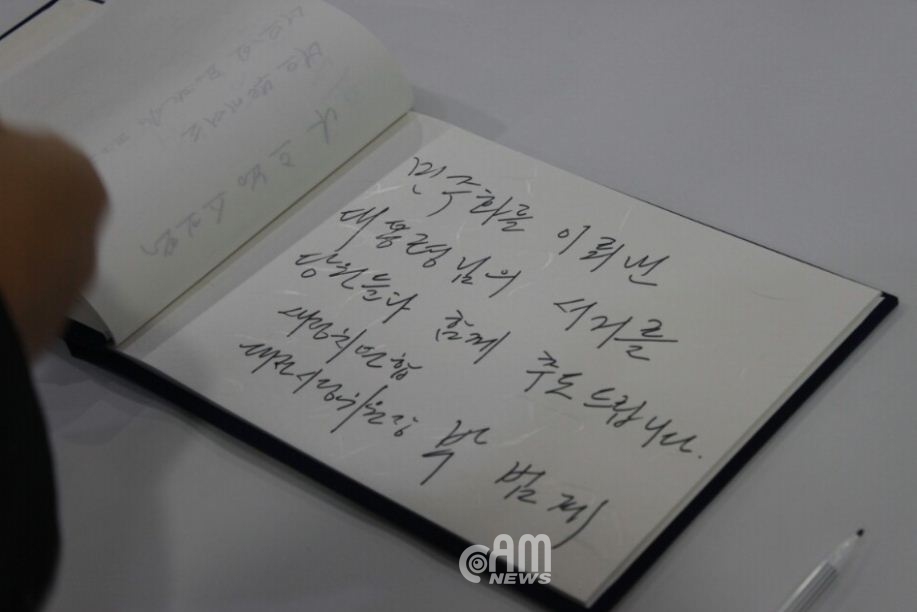 민주화를 이뤄낸
대통령님의 서거를
당원들과 함께 추도드립니다.
새정치민주연합
대전시당위원장 박범계
CAM
NEWS